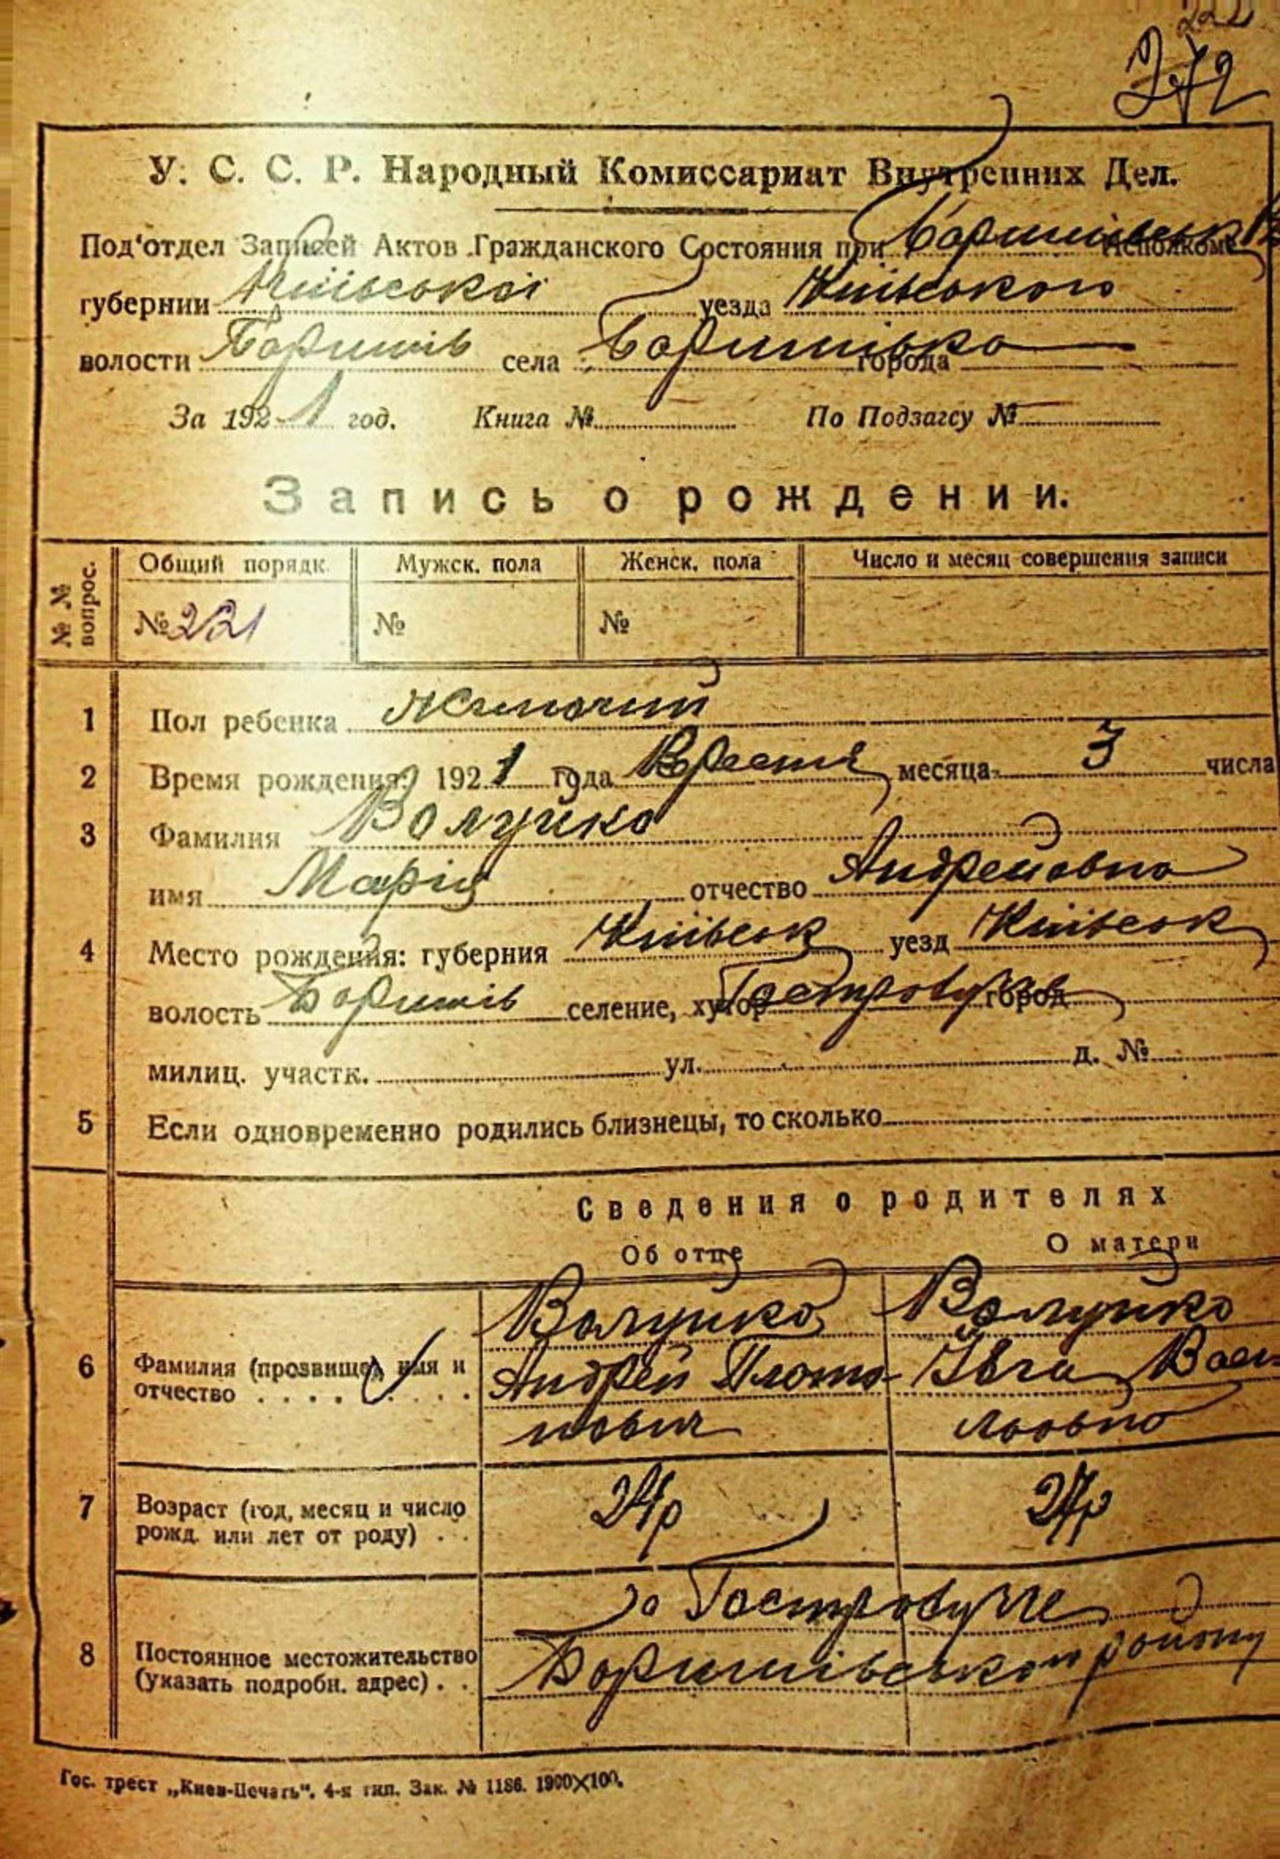 222
272
У. С. С. Р. Народный Комиссариат Внутренних Дел.
Под'отдел Записей Актов Гражданского Состояния при Исполкоме
губернии Київської уезда Київського
волости Баришів села Баришівка города
За 1921 год. Книга № По Подзагсу №
Запись о рождении.
№№ вопрос. Общий порядк. Мужск. пола Женск. пола Число и месяц совершения записи
№ 221 № №
1 Пол ребенка Жиночий
2 Время рождения: 1921 года Вресня месяца 3 числа
3 Фамилия Волуйко
имя Марія отчество Андреёвна
4 Место рождения: губерния Київськ уезд Київськ
волость Баришів селение, хутор город
милиц. участк. ул. д. №
5 Если одновременно родились близнецы, то сколько
Сведения о родителях
Об отце О матери
6 Фамилия (прозвище), имя и отчество . . . . . . . Волуйко Андрей Плато-нович Волуйко Ївга Васи-льовно
7 Возраст (год, месяц и число рожд. или лет от роду) . . 24р 27р
8 Постоянное местожительство (указать подробн. адрес) . . Гостролуччє Баришівського району
Гос. трест „Киев-Печать“. 4-я тип. Зак. № 1186. 1900×100.